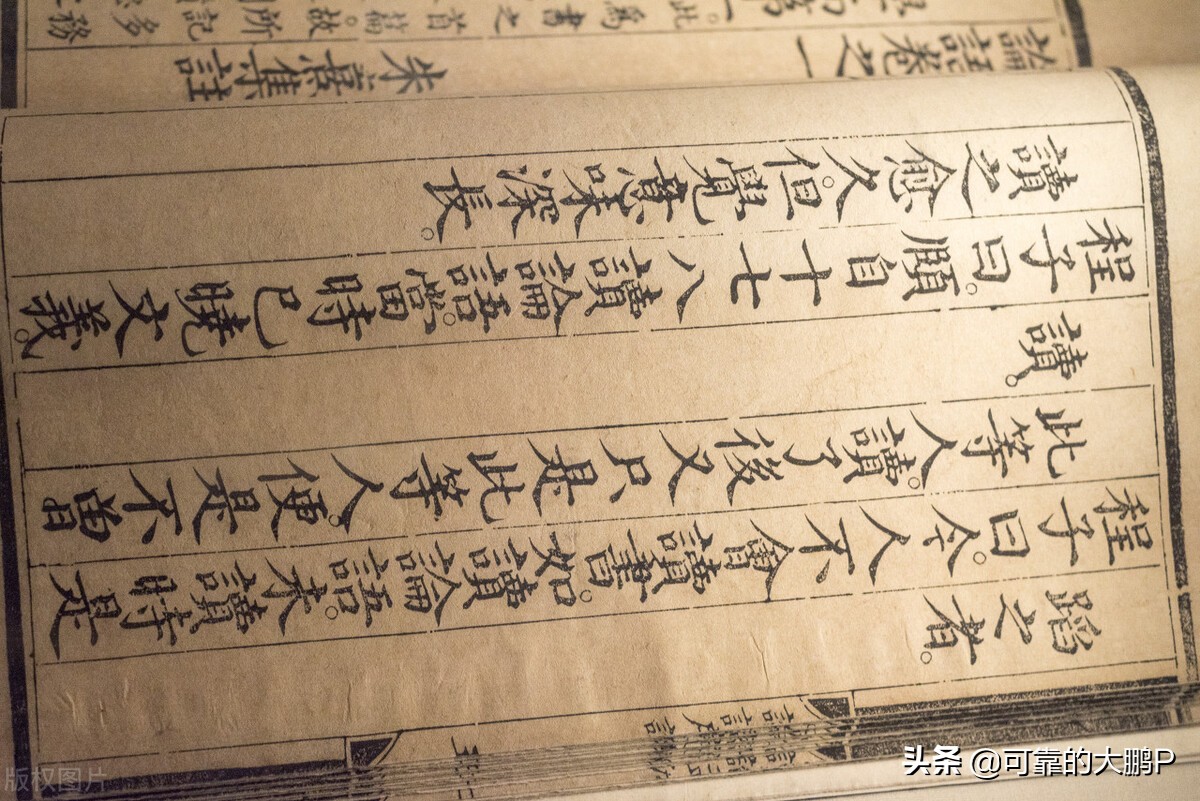 蹈之者。
程子曰。今人不會讀書。如讀論語。未讀時是
此等人讀了。後又只是此等人。便是不曾
讀。
程子曰。頤自十七八讀論語。當時已曉文義。
讀之愈久。但覺意味深長。
論語卷之一 朱熹集註
爲書之首篇。故所記多務
版权图片
头条 @可靠的大鹏P